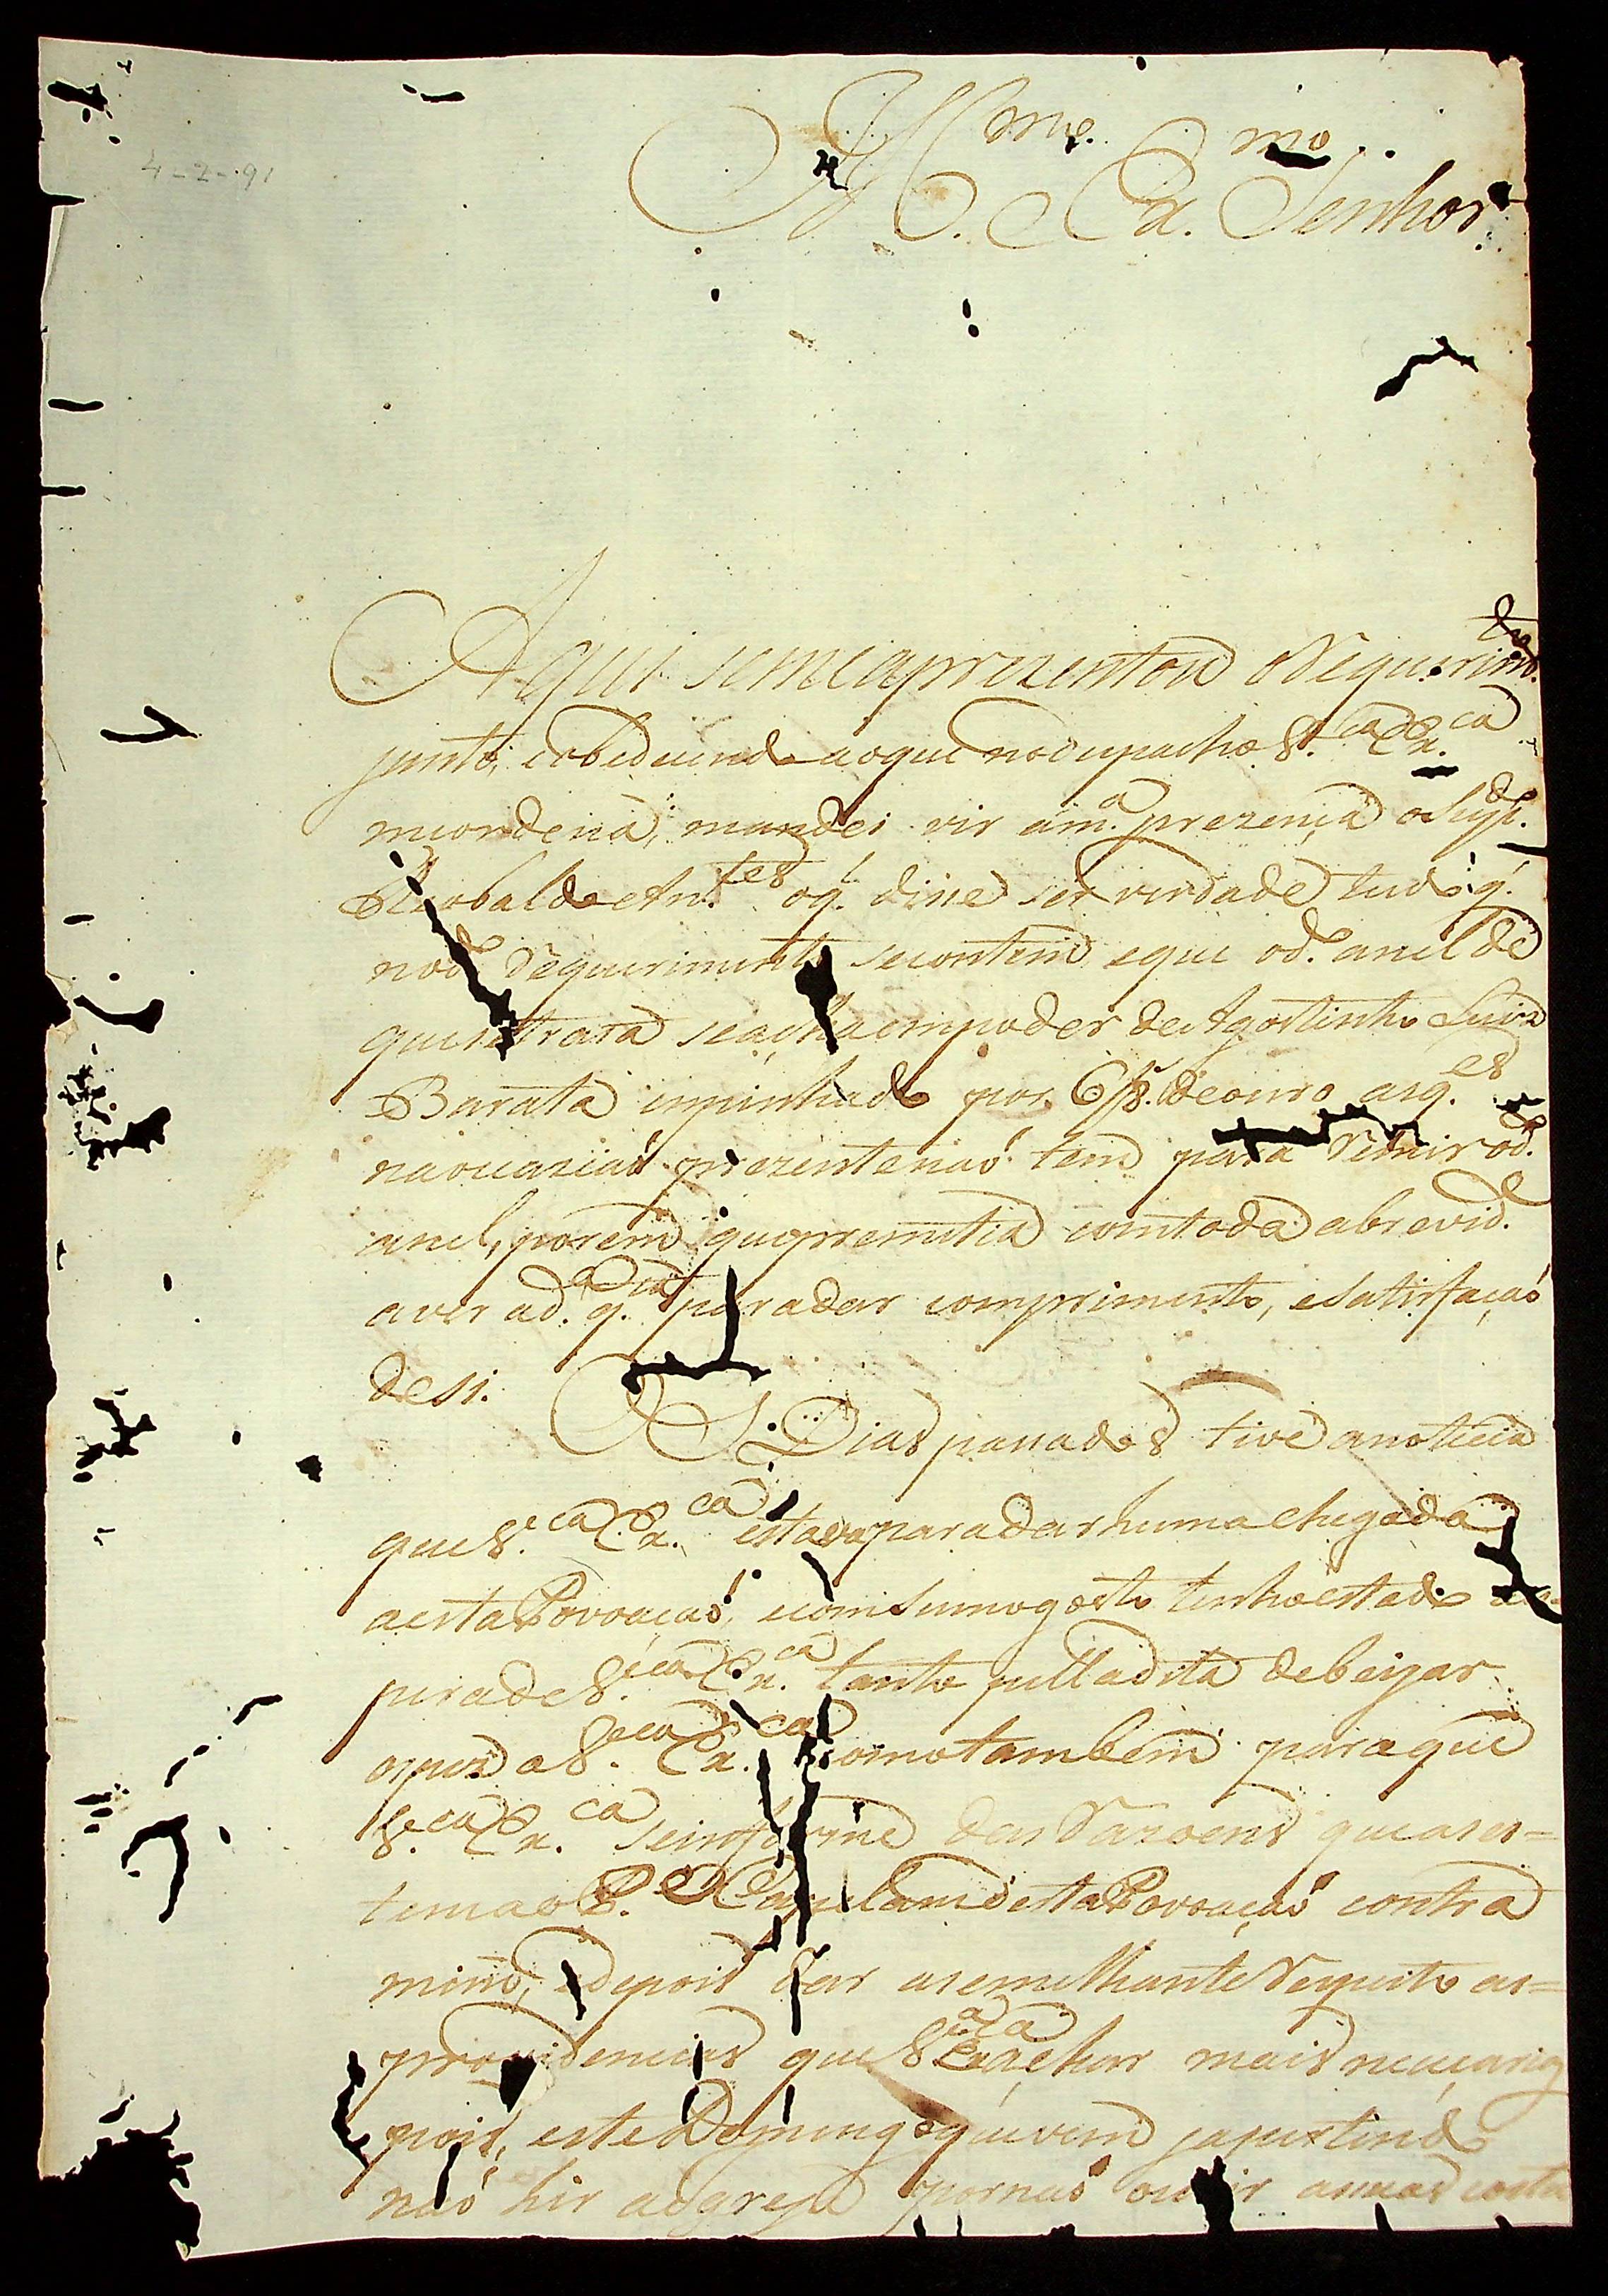 4-2-91
Ill.mo e Ex.mo Senhor
Aqui seme aprezentou o Requerim.to
junto, e obedecendo aoque nodespacho V. Ex.ca
meordena, mandei vir am.a prezença o Sup.do
Theobaldo An.tes oq.l disse ser verdade tudo q.
nod.o Requerimento secontem, eque od.o anel de
quesetrata seacha empoder de Agostinho Luiz
Barata empinhado por 6/8.s deouro asq.es
naocaziaõ prezente naõ tem para Remir od.o
anel, porem que premetia comtoda abrevid.e
aver ad.a q.tia paradar comprimento, esatisfaçaõ
desi.
Dias passados tive anoticia
que V. Ex.ca estava paradar huma chegada
aesta Povoacaõ, ecomsumogosto tenhoestado
perade V. Ex.ca tanto pella dita debeijar
ospez a V. Ex.ca comotambem paraque
V. Ex.ca seinforme das Razoens queases=
temao P.e Capelam desta Povoaçaõ contra
mim, edepois dar asemelhante Respeito as=
providencias que V. Ex.ca achar mais necesarias
pois, este Domingo quevem jápertendo
naõ hir aIgreja pornaõ ouvir assuas costu